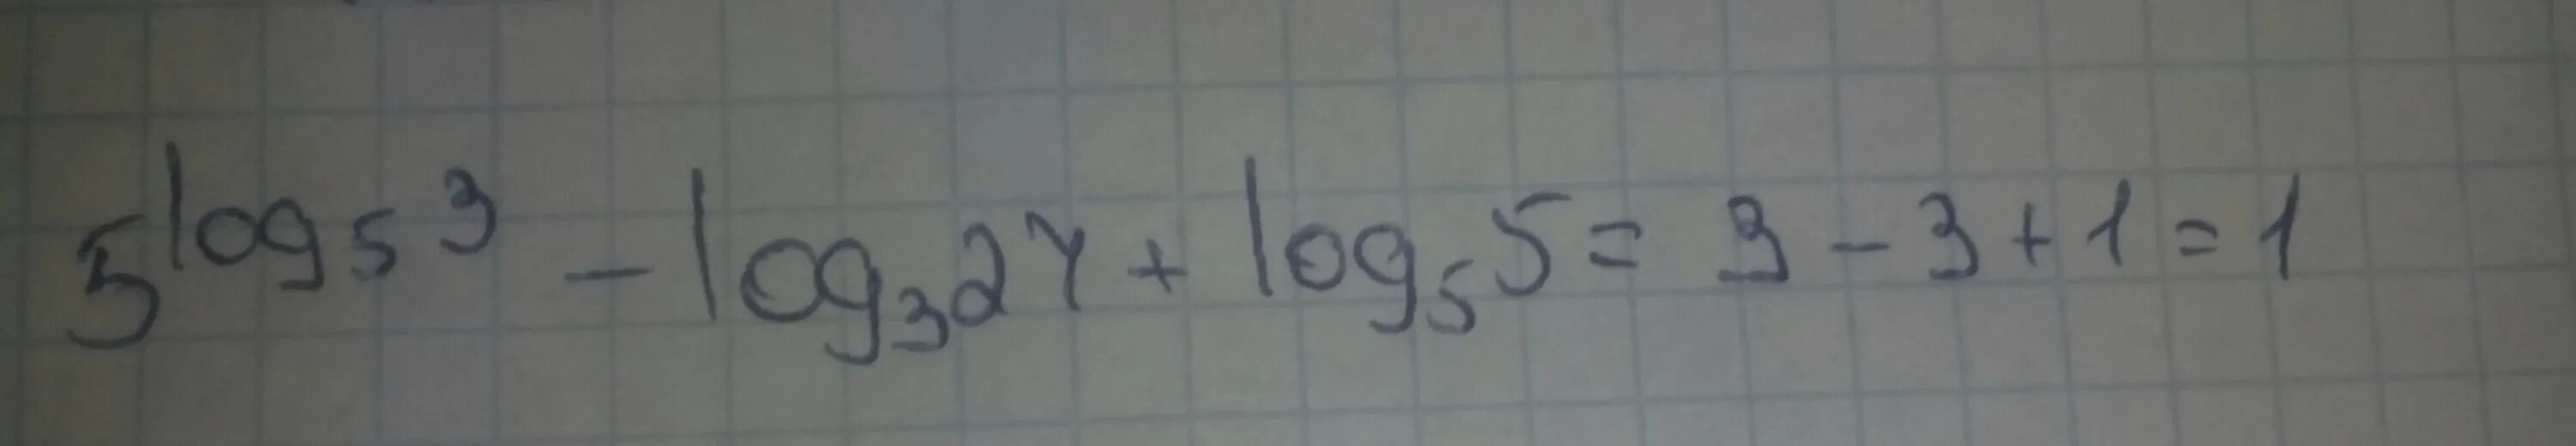 5^{log_5 3} - log_3 27 + log_5 5 = 3 - 3 + 1 = 1